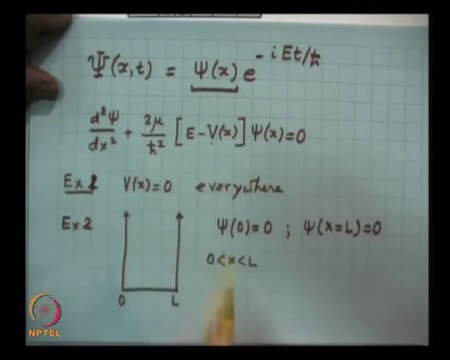 Ψ(x,t) = ψ(x) e^{-iEt/ħ}
d²ψ/dx² + 2μ/ħ² [E-V(x)] ψ(x)=0
Ex 1 V(x)=0 everywhere
Ex 2 ψ(0)=0 ; ψ(x=L)=0
0<x<L
0 L
NPTEL